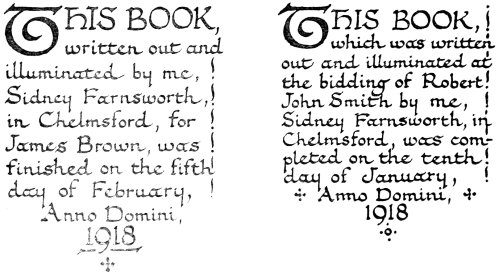 THIS BOOK,
written out and
illuminated by me, !
Sidney Farnsworth, !
in Chelmsford, for !
James Brown, was !
finished on the fifth
day of February, !
Anno Domini,
1918
THIS BOOK, !
which was written
out and illuminated at
the bidding of Robert !
John Smith by me, !
Sidney Farnsworth, in
Chelmsford, was com-
pleted on the tenth !
day of January, !
Anno Domini,
1918